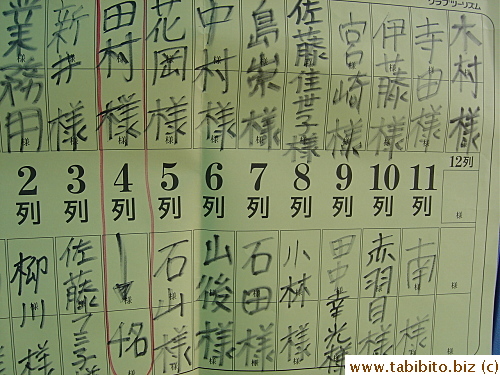 クラブツーリズム
業務用 新井様 田村様 花岡様 中村様 島 様 佐藤佳世子様 宮崎様 伊藤様 寺田様 木村様
2列 3列 4列 5列 6列 7列 8列 9列 10列 11列 12列
柳川様 佐藤 子様 ↓ 名 石山様 山後様 石田様 小林様 田中幸光様 赤羽目様 南様
www.tabibito.biz (c)